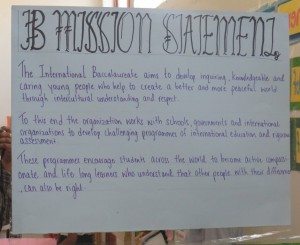 IB MISSION STATEMENT
The International Baccalaureate aims to develop inquiring, knowledgeable and
caring young people who help to create a better and more peaceful world
through intercultural understanding and respect.
To this end the organization works with schools, governments and international
organizations to develop challenging programmes of international education and rigorous
assessment.
These programmes encourage students across the world to become active, compass-
ionate, and life long learners who understand that other people, with their differences
, can also be right.